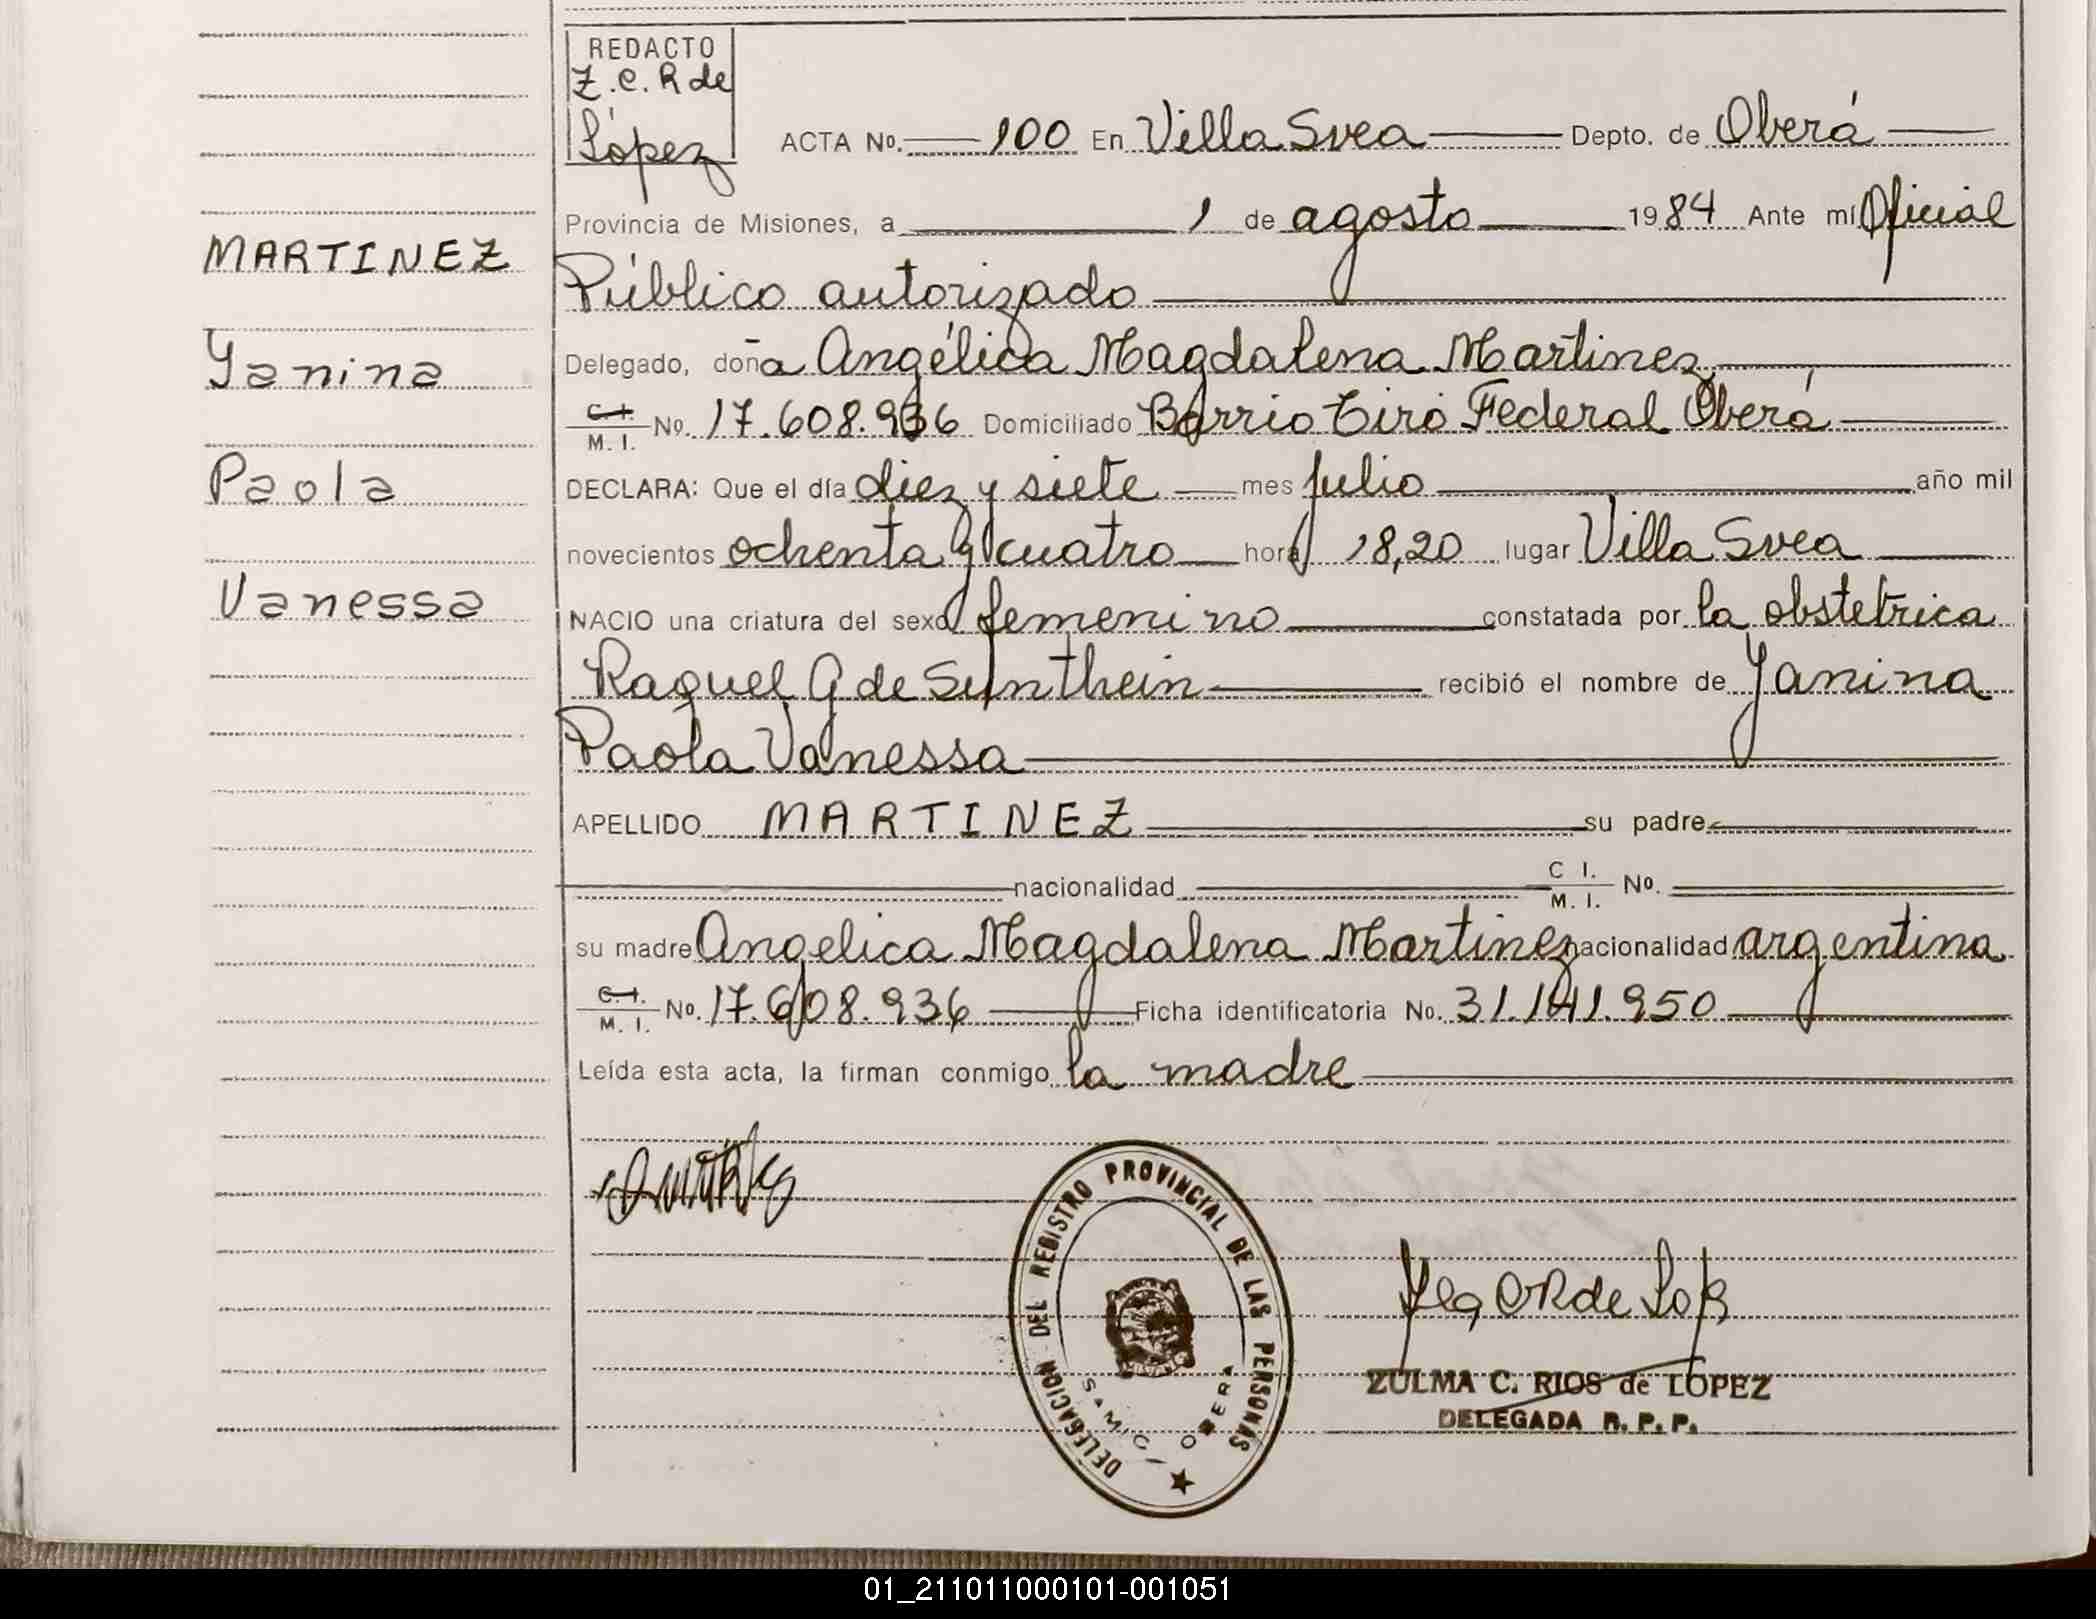 REDACTO
Z. C. R de
López
ACTA No. 100 En Villa Svea Depto. de Oberá
Provincia de Misiones, a 1 de agosto 1984 Ante mí Oficial
Público autorizado
Delegado, doña Angélica Magdalena Martinez
C. I. / M. I. No. 17.608.936 Domiciliado Barrio Tiro Federal Oberá
DECLARA: Que el día diez y siete mes julio año mil
novecientos ochenta y cuatro hora 18,20 lugar Villa Svea
NACIO una criatura del sexo femenino constatada por la obstetrica
Raquel G de Sunthein recibió el nombre de Yanina
Paola Vanessa
APELLIDO MARTINEZ su padre
nacionalidad C I. / M. I. No.
su madre Angelica Magdalena Martinez nacionalidad argentina
C. I. / M. I. No. 17.608.936 Ficha identificatoria No. 31.141.950
Leída esta acta, la firman conmigo la madre
MARTINEZ
Yanina
Paola
Vanessa
DELEGACION DEL REGISTRO PROVINCIAL DE LAS PERSONAS
SAMIC - OBERA
ZULMA C. RIOS de LOPEZ
DELEGADA R. P. P.
01_211011000101-001051